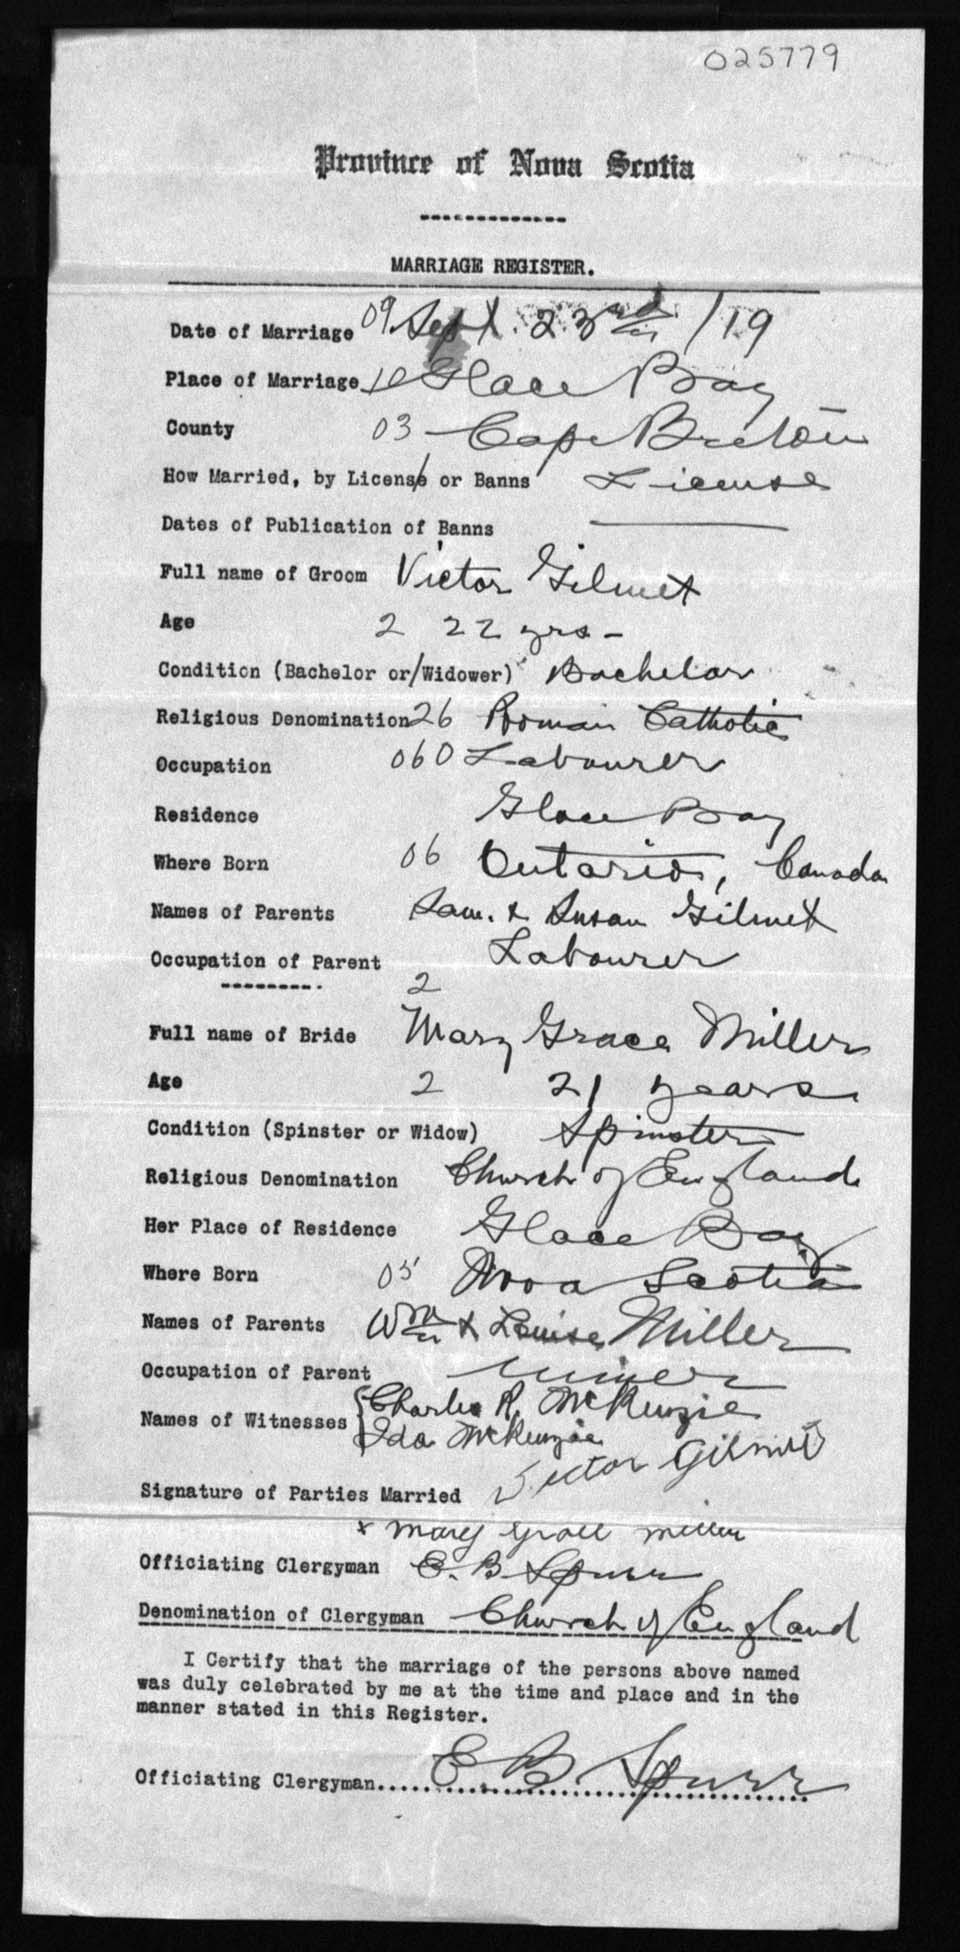 025779
Province of Nova Scotia
MARRIAGE REGISTER.
Date of Marriage 09 Sept. 23rd /19
Place of Marriage 10 Glace Bay
County 03 Cape Breton
How Married, by License or Banns License
Dates of Publication of Banns
Full name of Groom Victor Gilmet
Age 2 22 yrs-
Condition (Bachelor or Widower) Bachelor
Religious Denomination 26 Roman Catholic
Occupation 060 Labourer
Residence Glace Bay
Where Born 06 Ontario, Canada
Names of Parents Sam. & Susan Gilmet
Occupation of Parent Labourer
2
Full name of Bride Mary Grace Miller
Age 2 21 years
Condition (Spinster or Widow) Spinster
Religious Denomination Church of England
Her Place of Residence Glace Bay
Where Born 05 Nova Scotia
Names of Parents Wm & Louise Miller
Occupation of Parent Miner
Names of Witnesses Charles R. McKenzie
Ida McKenzie
Signature of Parties Married Victor Gilmet
x Mary Grace Miller
Officiating Clergyman E. B. Spurr
Denomination of Clergyman Church of England
I Certify that the marriage of the persons above named
was duly celebrated by me at the time and place and in the
manner stated in this Register.
Officiating Clergyman E B. Spurr